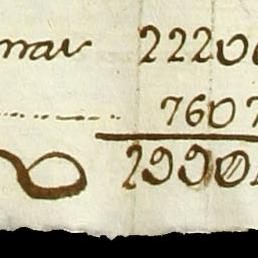 mar 22200
7607
29901